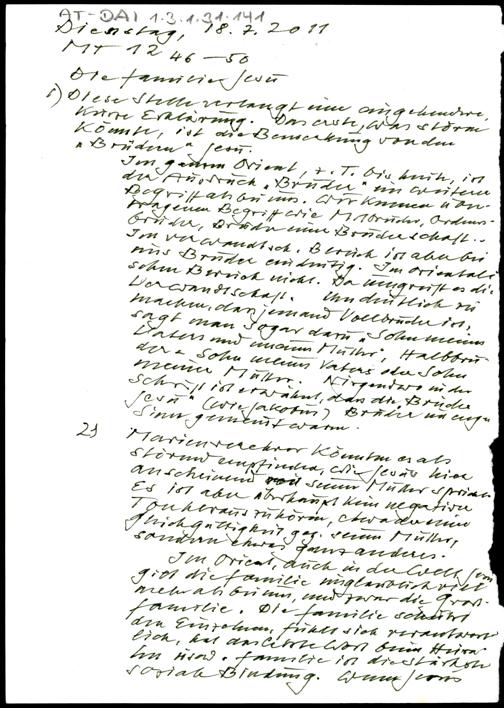 AT-DAI 1.3.1.31.141
Dienstag, 18.7.2011
MT 12 46-50
Die Familie Jesu
1) Diese Stelle verlangt eine eingehendere,
kurze Erklärung. Das erste, was stören
könnte, ist die Bemerkung von den
"Brüdern" Jesu.
Im ganzen Orient, z.T. bis heute, ist
der Ausdruck "Brüder" ein weiterer
Begriff als bei uns. Wir kennen über-
tragenen Begriff wie Mitbruder, Ordens-
bruder, Brüder einer Bruderschaft..
Im verwandtsch. Bereich ist aber bei
uns Bruder eindeutig. Im orientali
schen Bereich nicht. Da umgreift es die
Verwandtschaft. Um deutlich zu
machen, dass jemand Vollbruder ist,
sagt man sogar dazu "Sohn meines
Vaters und meiner Mutter", Halbbru-
der = Sohn meines Vaters oder Sohn
meiner Mutter. Nirgendwo in der
Schrift ist erwähnt, dass die Brüder
Jesu (wie Jakobus) Brüder im engen
Sinn gemeint waren.
2) Marienverehrer könnten es als
störend empfinden, wie Jesus hier
anscheinend von seiner Mutter spricht.
Es ist aber überhaupt kein negativer
Ton herauszuhören, etwa der einer
Gleichgültigkeit geg. seiner Mutter,
sondern etwas ganz anderes.
Im Orient, auch in der Welt Jesu
gilt die Familie unglaublich viel
mehr als bei uns, und zwar die Groß-
familie. Die Familie schützt
den Einzelnen, fühlt sich verantwort
lich, hat das letzte Wort beim Heira
ten usw. Familie ist die stärkste
soziale Bindung. Wenn Jesus